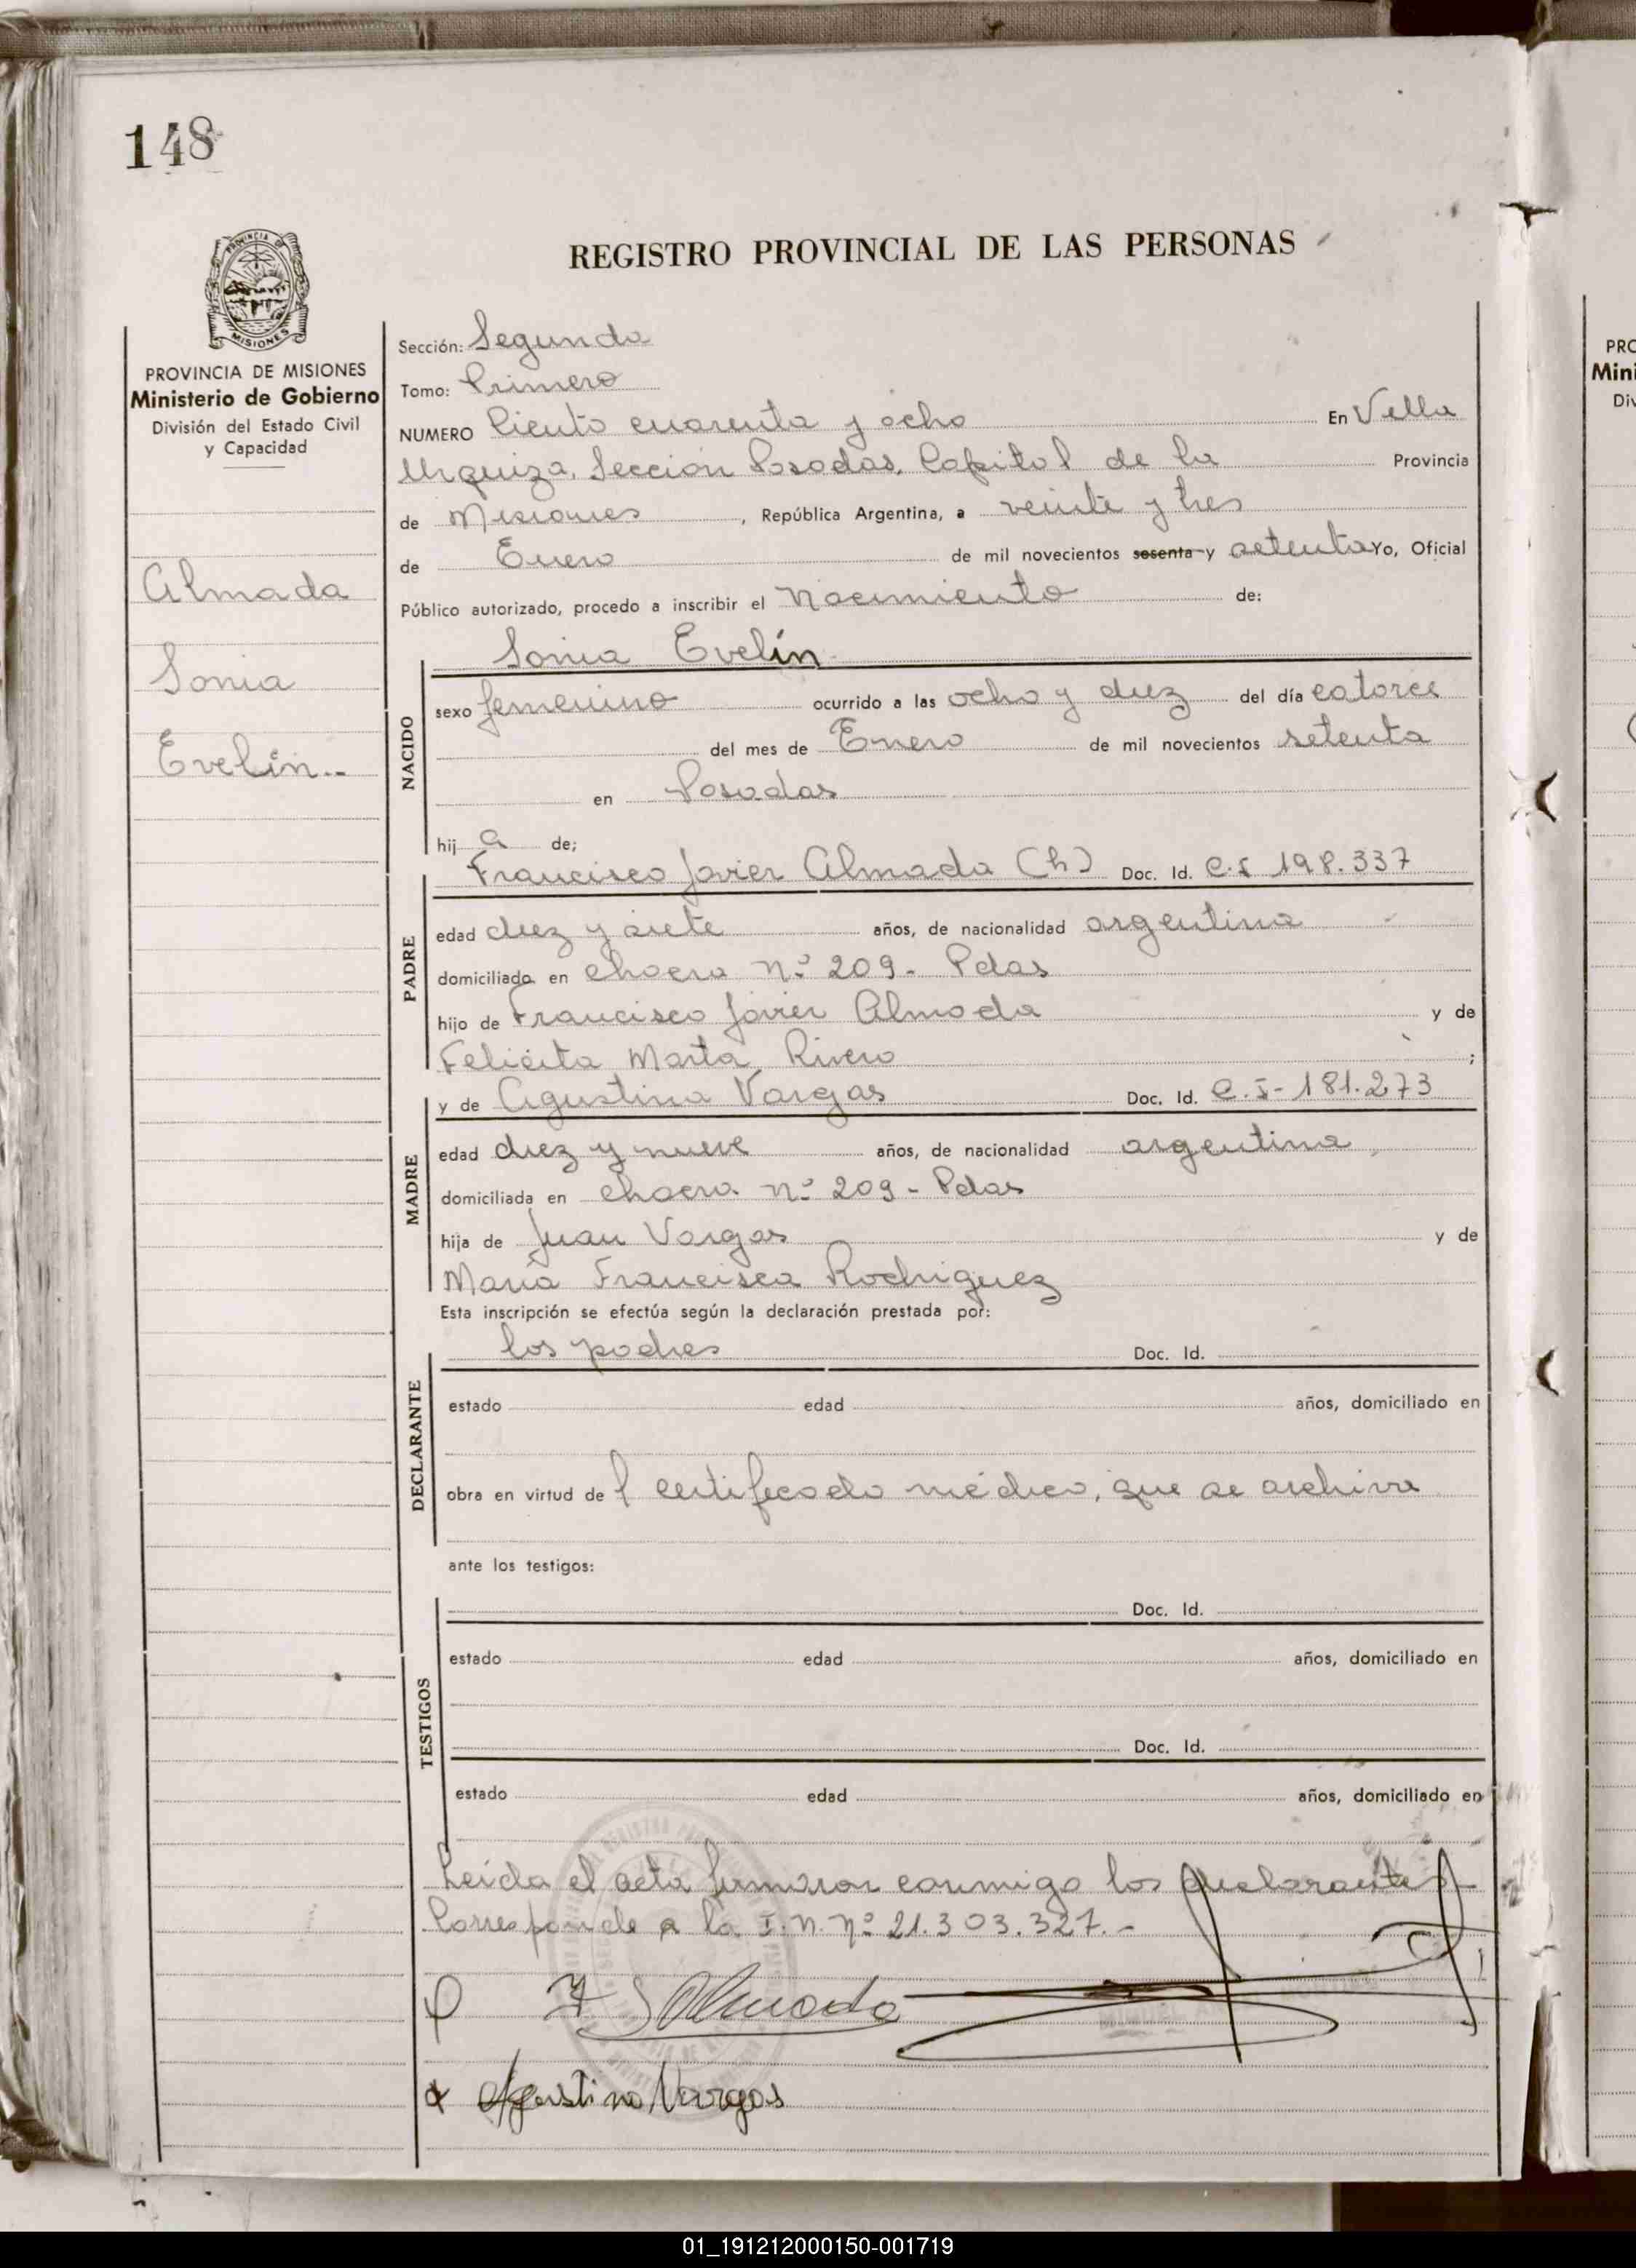 148
REGISTRO PROVINCIAL DE LAS PERSONAS
PROVINCIA DE MISIONES
Ministerio de Gobierno
División del Estado Civil
y Capacidad
Almada
Sonia
Evelín..
Sección: Segunda
Tomo: Primero
NUMERO Ciento cuarenta y ocho En Villa
Urquiza, Sección Posadas, Capital de la Provincia
de Misiones, República Argentina, a veinte y tres
de Enero de mil novecientos sesenta y setenta Yo, Oficial
Público autorizado, procedo a inscribir el Nacimiento de:
Sonia Evelín
NACIDO
sexo femenino ocurrido a las ocho y diez del día catorce
del mes de Enero de mil novecientos setenta
en Posadas
hij a de;
Francisco Javier Almada (h) Doc. Id. C.I 198.337
PADRE
edad diez y siete años, de nacionalidad argentina
domiciliado en chacra nº 209 - Pdas
hijo de Francisco Javier Almada y de
Felicita Marta Rivero ;
y de Agustina Vargas Doc. Id. C.I- 181.273
MADRE
edad diez y nueve años, de nacionalidad argentina
domiciliada en chacra nº 209 - Pdas
hija de Juan Vargas y de
María Francisca Rodriguez
Esta inscripción se efectúa según la declaración prestada por:
los padres Doc. Id.
DECLARANTE
estado edad años, domiciliado en
obra en virtud de l certificado médico, que se archiva
ante los testigos:
Doc. Id.
TESTIGOS
estado edad años, domiciliado en
Doc. Id.
estado edad años, domiciliado en
Leída el acta firmaron conmigo los declarantes
Corresponde a la I.N. Nº 21.303.327.-
F J Almada
Agustina Vargas
PRO
Mini
Div
01_191212000150-001719